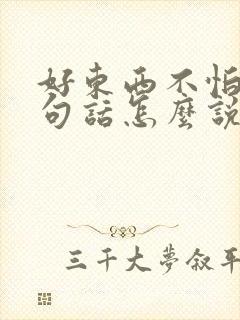 好東西不怕
句話怎麼說
三千大夢叙平